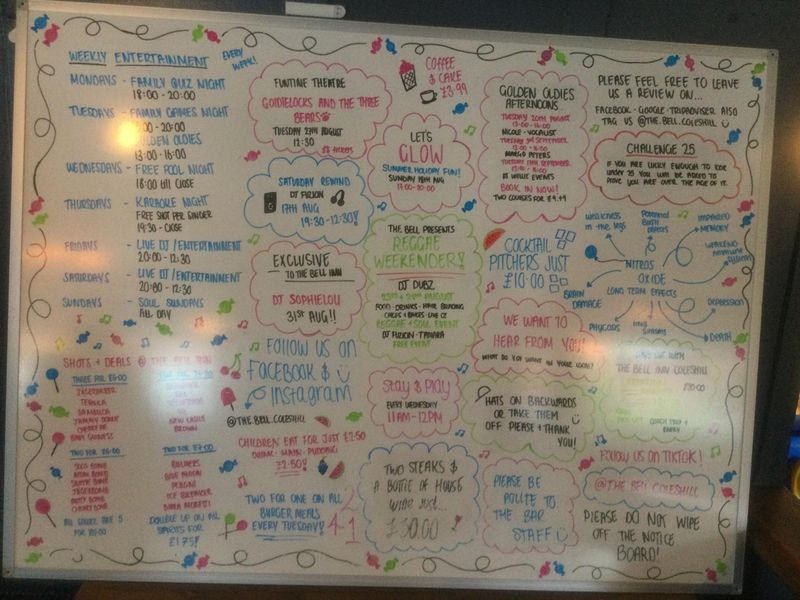 WEEKLY ENTERTAINMENT EVERY WEEK!
MONDAYS - FAMILY QUIZ NIGHT
18:00 - 20:00
TUESDAYS - FAMILY GAMES NIGHT
:00 - 20:00
OLDIES
13:00 - 16:00
WEDNESDAYS - FREE POOL NIGHT
18:00 till CLOSE
THURSDAYS - KARAOKE NIGHT
FREE SHOT PER SINGER
19:30 - CLOSE
FRIDAYS - LIVE DJ / ENTERTAINMENT
20:00 - 12:30
SATURDAYS - LIVE DJ / ENTERTAINMENT
20:00 - 12:30
SUNDAYS - SOUL SUNDAYS
ALL DAY
SHOTS + DEALS @ THE BELL INN
THREE FOR £6:00
JÄGERBOMB
TEQUILA
SAMBUCA
BABY GUINNESS
NEW CASTLE
BROWN
TWO FOR £6:00
JÄGERBOMB
CHERRY BOMB
TWO FOR £7:00
BULMERS
PERONI
ICE BREAKER
BIRRA MORETTI
DOUBLE UP ON ALL
SPIRITS FOR
£1.75!
FUNTIME THEATRE
GOLDIELOCKS AND THE THREE
BEARS
TUESDAY 27TH AUGUST
12:30
SATURDAY REWIND
DJ FUZION
17TH AUG
19:30 - 12:30!
EXCLUSIVE
TO THE BELL INN
DJ SOPHIELOU
31ST AUG!!
FOLLOW US ON
FACEBOOK &
Instagram
@THE.BELL.COLESHILL
CHILDREN EAT FOR JUST £2:50
DRINK - MAIN - PUDDING
£2:50!
TWO FOR ONE ON ALL
BURGER MEALS
EVERY TUESDAY!
2
4
1
COFFEE
& CAKE
£3.99
LET'S
GLOW
SUMMER HOLIDAY FUN!
SUNDAY 18TH AUG
17:00 - 20:00
THE BELL PRESENTS
REGGAE
WEEKENDER!
DJ DUBZ
23RD + 24TH AUGUST
FOOD - DRINKS - HAIR BRAIDING
REGGAE + SOUL EVENT
DJ FUZION - TAMARA
FREE EVENT
STAY & PLAY
EVERY WEDNESDAY
11AM - 12PM
TWO STEAKS &
A BOTTLE OF HOUSE
WINE JUST...
£30.00
GOLDEN OLDIES
AFTERNOONS...
TUESDAY 20TH AUGUST
13:00 - 16:00
NICOLE - VOCALIST
TUESDAY 3RD SEPTEMBER
13:00 - 16:00
MARGO PETERS
SEPTEMBER
BOOK IN NOW!
TWO COURSES FOR £9.99
COCKTAIL
PITCHERS JUST
£10.00
WE WANT TO
HEAR FROM YOU!
WHAT DO YOU WANT IN YOUR LOCAL?
HATS ON BACKWARDS
OR TAKE THEM
OFF PLEASE + THANK
YOU!
PLEASE BE
POLITE TO
THE BAR
STAFF
PLEASE FEEL FREE TO LEAVE
US A REVIEW ON...
FACEBOOK - GOOGLE - TRIPADVISER ALSO
TAG US @THE.BELL.COLESHILL
CHALLENGE 25
IF YOU ARE LUCKY ENOUGH TO LOOK
UNDER 25 YOU WILL BE ASKED TO
PROVE YOU ARE OVER THE AGE OF 18.
WEAKNESS
IN THE LEGS
POTENTIAL
BIRTH
DEFECTS
IMPAIRED
MEMORY
WEAKENED
IMMUNE
SYSTEM
NITROS
OXIDE
LONG TERM EFFECTS
BRAIN
DAMAGE
DEPRESSION
DEATH
THE BELL INN COLESHILL
FOLLOW US ON TIKTOK!
@THE BELL COLESHILL
PLEASE DO NOT WIPE
OFF THE NOTICE
BOARD!